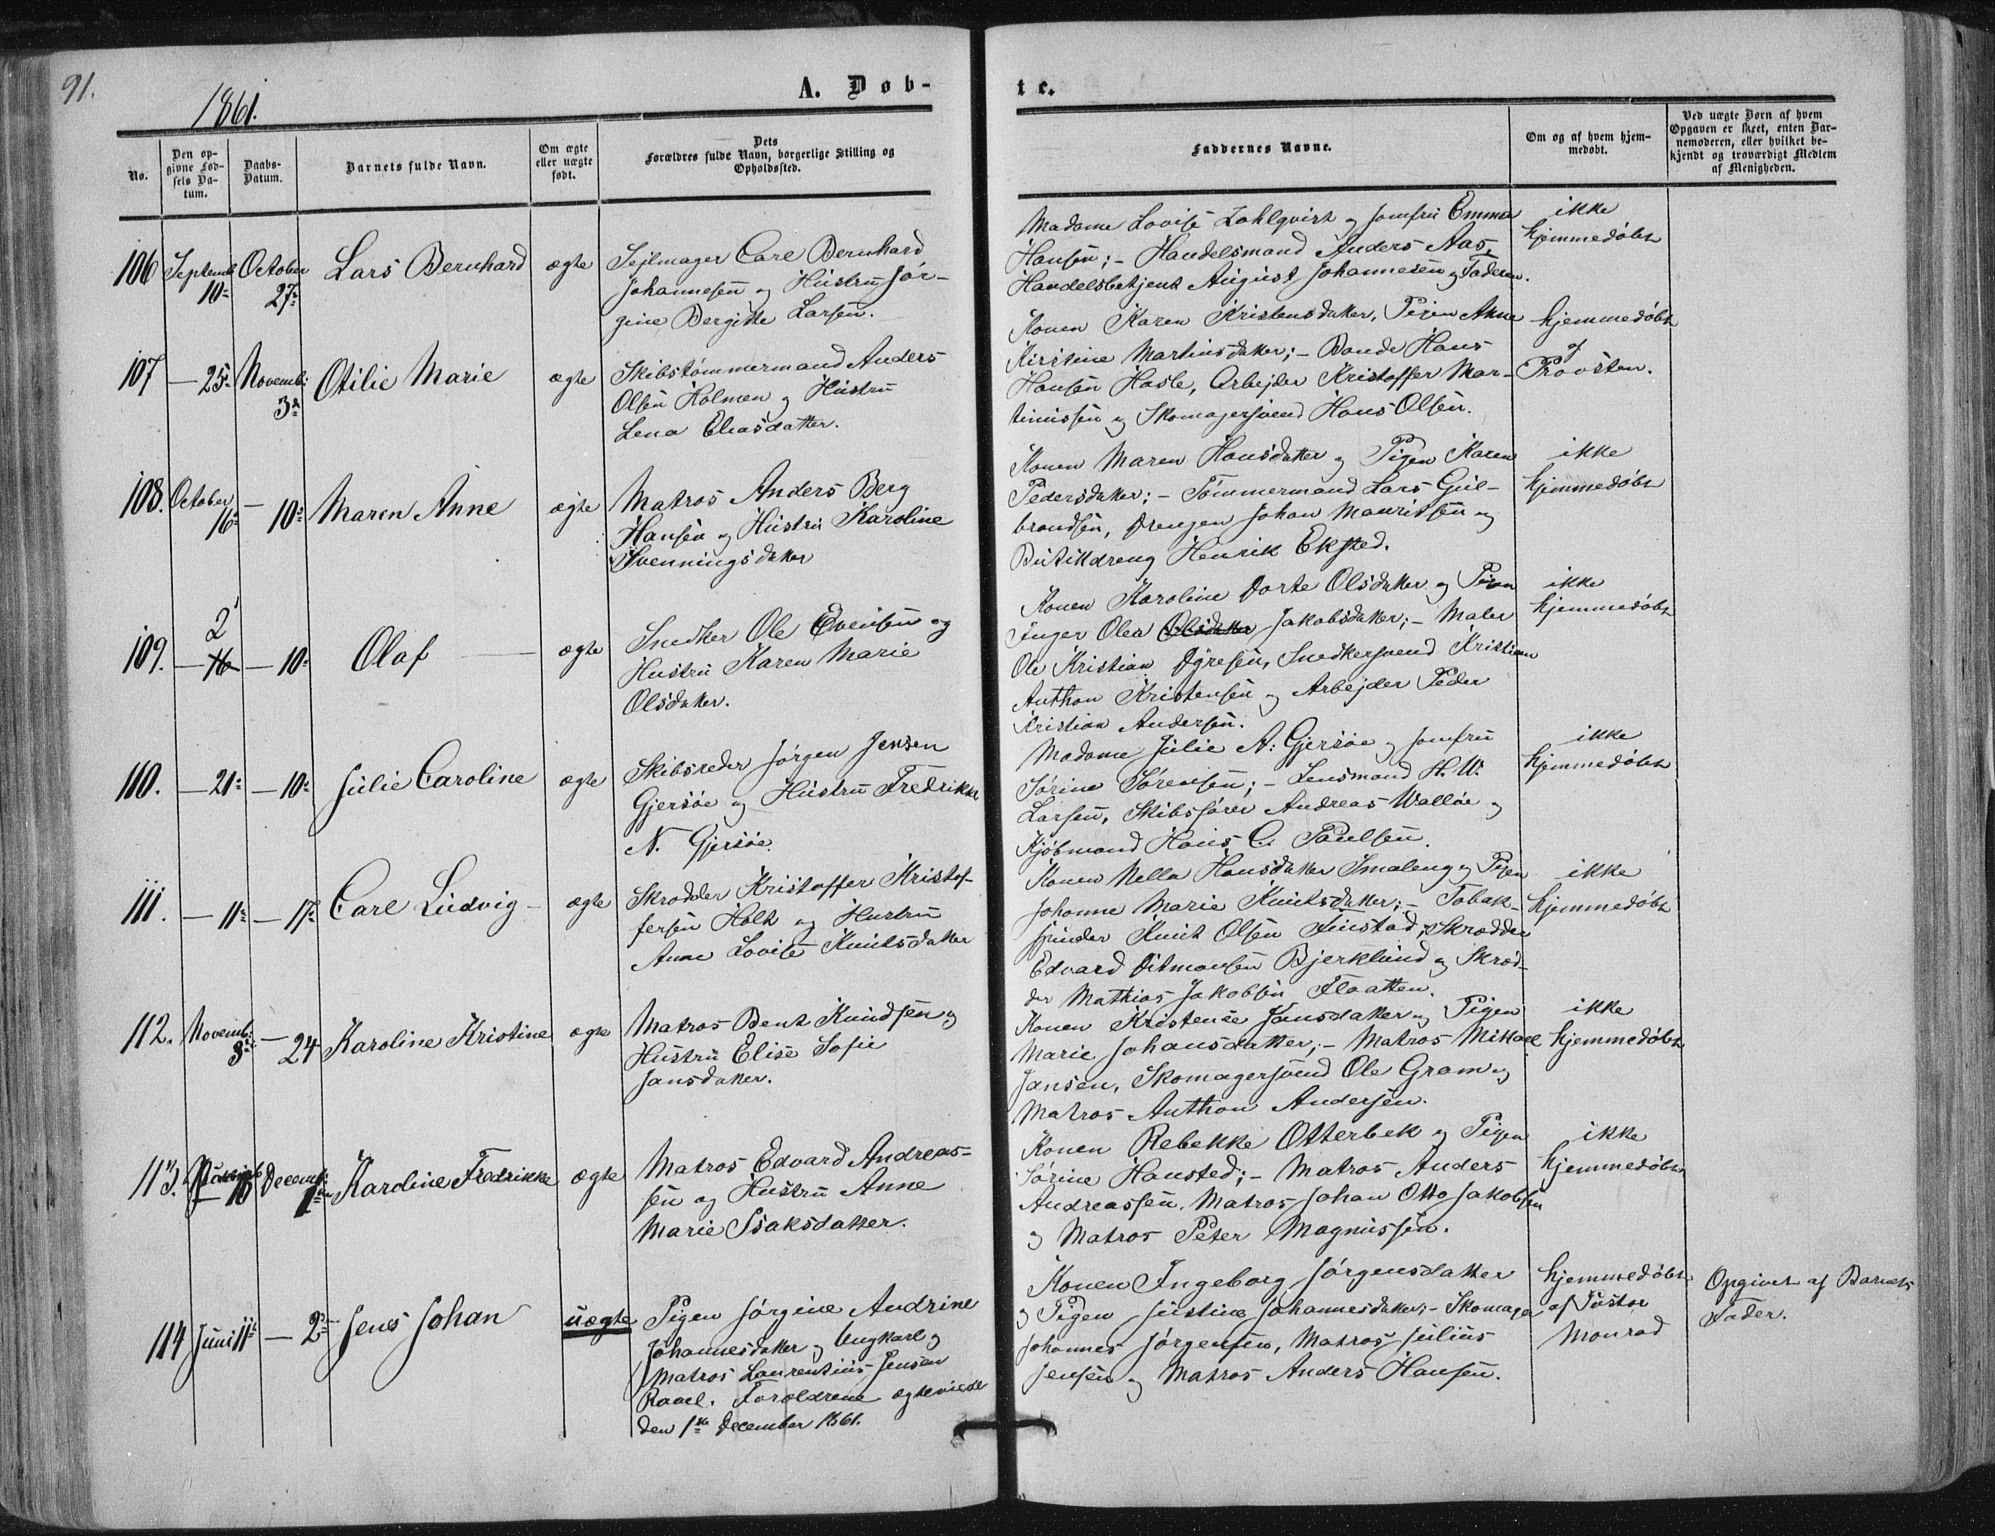 91.
1861.
A. Døb-
te.
No.
Den op-
givne Fød-
sels Da-
tum.
Daabs-
Datum.
Barnets fulde Navn.
Om ægte
eller uægte
født.
Dets
Forældres fulde Navn, borgerlige Stilling og
Opholdssted.
Faddernes Navne.
Om og af hvem hjem-
medøbt.
Ved uægte Børn af hvem
Opgaven er skeet, enten Bar-
nemoderen, eller hvilket be-
kjendt og troværdigt Medlem
af Menigheden.
106 Septemb October Lars Bernhard ægte
10 27
Sejlmager Carl Bernhard
Johannesen og Hustru Jør-
gine Bergitte Larsen.
Madame Lovise Zahlqvist og Jomfru Emma
Hansen; - Handelsmand Anders Aas,
Handelsbetjent August Johannesen og Faderen.
ikke
hjemmedøbt
107 — 25 Novemb: Otilie Marie ægte
3
Skibstømmermand Anders
Olsen Holmen og Hustru
Lena Eliasdatter.
Konen Karen Kristensdatter, Pigen Anne
Kirstine Martinsdatter; - Bonde Hans
Hansen Hasle, Arbejder Kristoffer Mar-
tinussen og Skomagersvend Hans Olsen.
hjemmedøbt
af
Provsten.
108. October — 10 Maren Anne ægte
16
Matros Anders Berg
Hansen og Hustru Karoline
Svenningsdatter
Konen Maren Hansdatter og Pigen Karen
Pedersdatter; - Tømmermand Lars Gul-
brandsen, Drengen Johan Mauritsen og
Butikdreng Henrik Eksted.
ikke
hjemmedøbt
2
109. — 16 — 10 Olaf ægte
Snedker Ole Evensen og
Hustru Karen Marie
Olsdatter.
Konen Karoline Dorte Olsdatter og Pigen
Inger Olea Olsdatter Jakobsdatter; - Maler
Ole Kristian Dyresen, Snedkersvend Kristian
Anthon Kristensen og Arbejder Peder
Kristian Andersen.
ikke
hjemmedøbt
110. — 21 — 10 Julie Caroline ægte
Skibsreder Jørgen Jensen
Gjersøe og Hustru Fredrikke
N. Gjersøe.
Madame Julie A: Gjersøe og Jomfru
Sørine Sørensen; - Lensmand H. W.
Larsen, Skibsfører Andreas Walløe og
Kjøbmand Hans C. Paulsen.
ikke
hjemmedøbt
111. — 11 — 17 Carl Ludvig - ægte
Skrædder Kristoffer Kristof-
fersen Holt og Hustru
Anne Lovise Knutsdatter
Konen Nella Hansdatter Smaleng og Pigen
Johanne Marie Knutsdatter; - Tobak-
spinder Knut Olsen Finstad, Skrædder
Edvard Ditmansen Bjerklund og Skræd-
der Mathias Jakobsen Flaatten.
ikke
hjemmedøbt
112. Novemb: — 24 Karoline Kristine ægte
3
Matros Bent Knudsen og
Hustru Elise Sofie
Jansdatter.
Konen Kristense Jansdatter og Pigen
Marie Johansdatter; - Matros Mikael
Jansen, Skomagersvend Ole Gram og
Matros Anthon Andersen.
ikke
hjemmedøbt
113. Decemb: Karoline Fredrikke ægte
Matros Edvard Andreas-
sen og Hustru Anne
Marie Isaksdatter.
Konen Rebekke Otterbek og Pigen
Sørine Hansted; - Matros Anders
Andreassen, Matros Johan Otto Jakobsen
og Matros Peter Magnussen.
ikke
hjemmedøbt
114 Juni 11 — 2 Jens Johan uægte
Pigen Jørgine Andrine
Johannesdatter og Ungkarl og
Matros Laurentius Jensen
Raael. Forældrene ægteviede
den 1ste December 1861.
Konen Ingeborg Jørgensdatter
og Pigen Justine Johannesdatter; - Skomager
Johannes Jørgensen, Matros Julius
Jensen og Matros Anders Hansen.
hjemmedøbt
af Pastor
Monrad
Opgivet af Barnets
Fader.